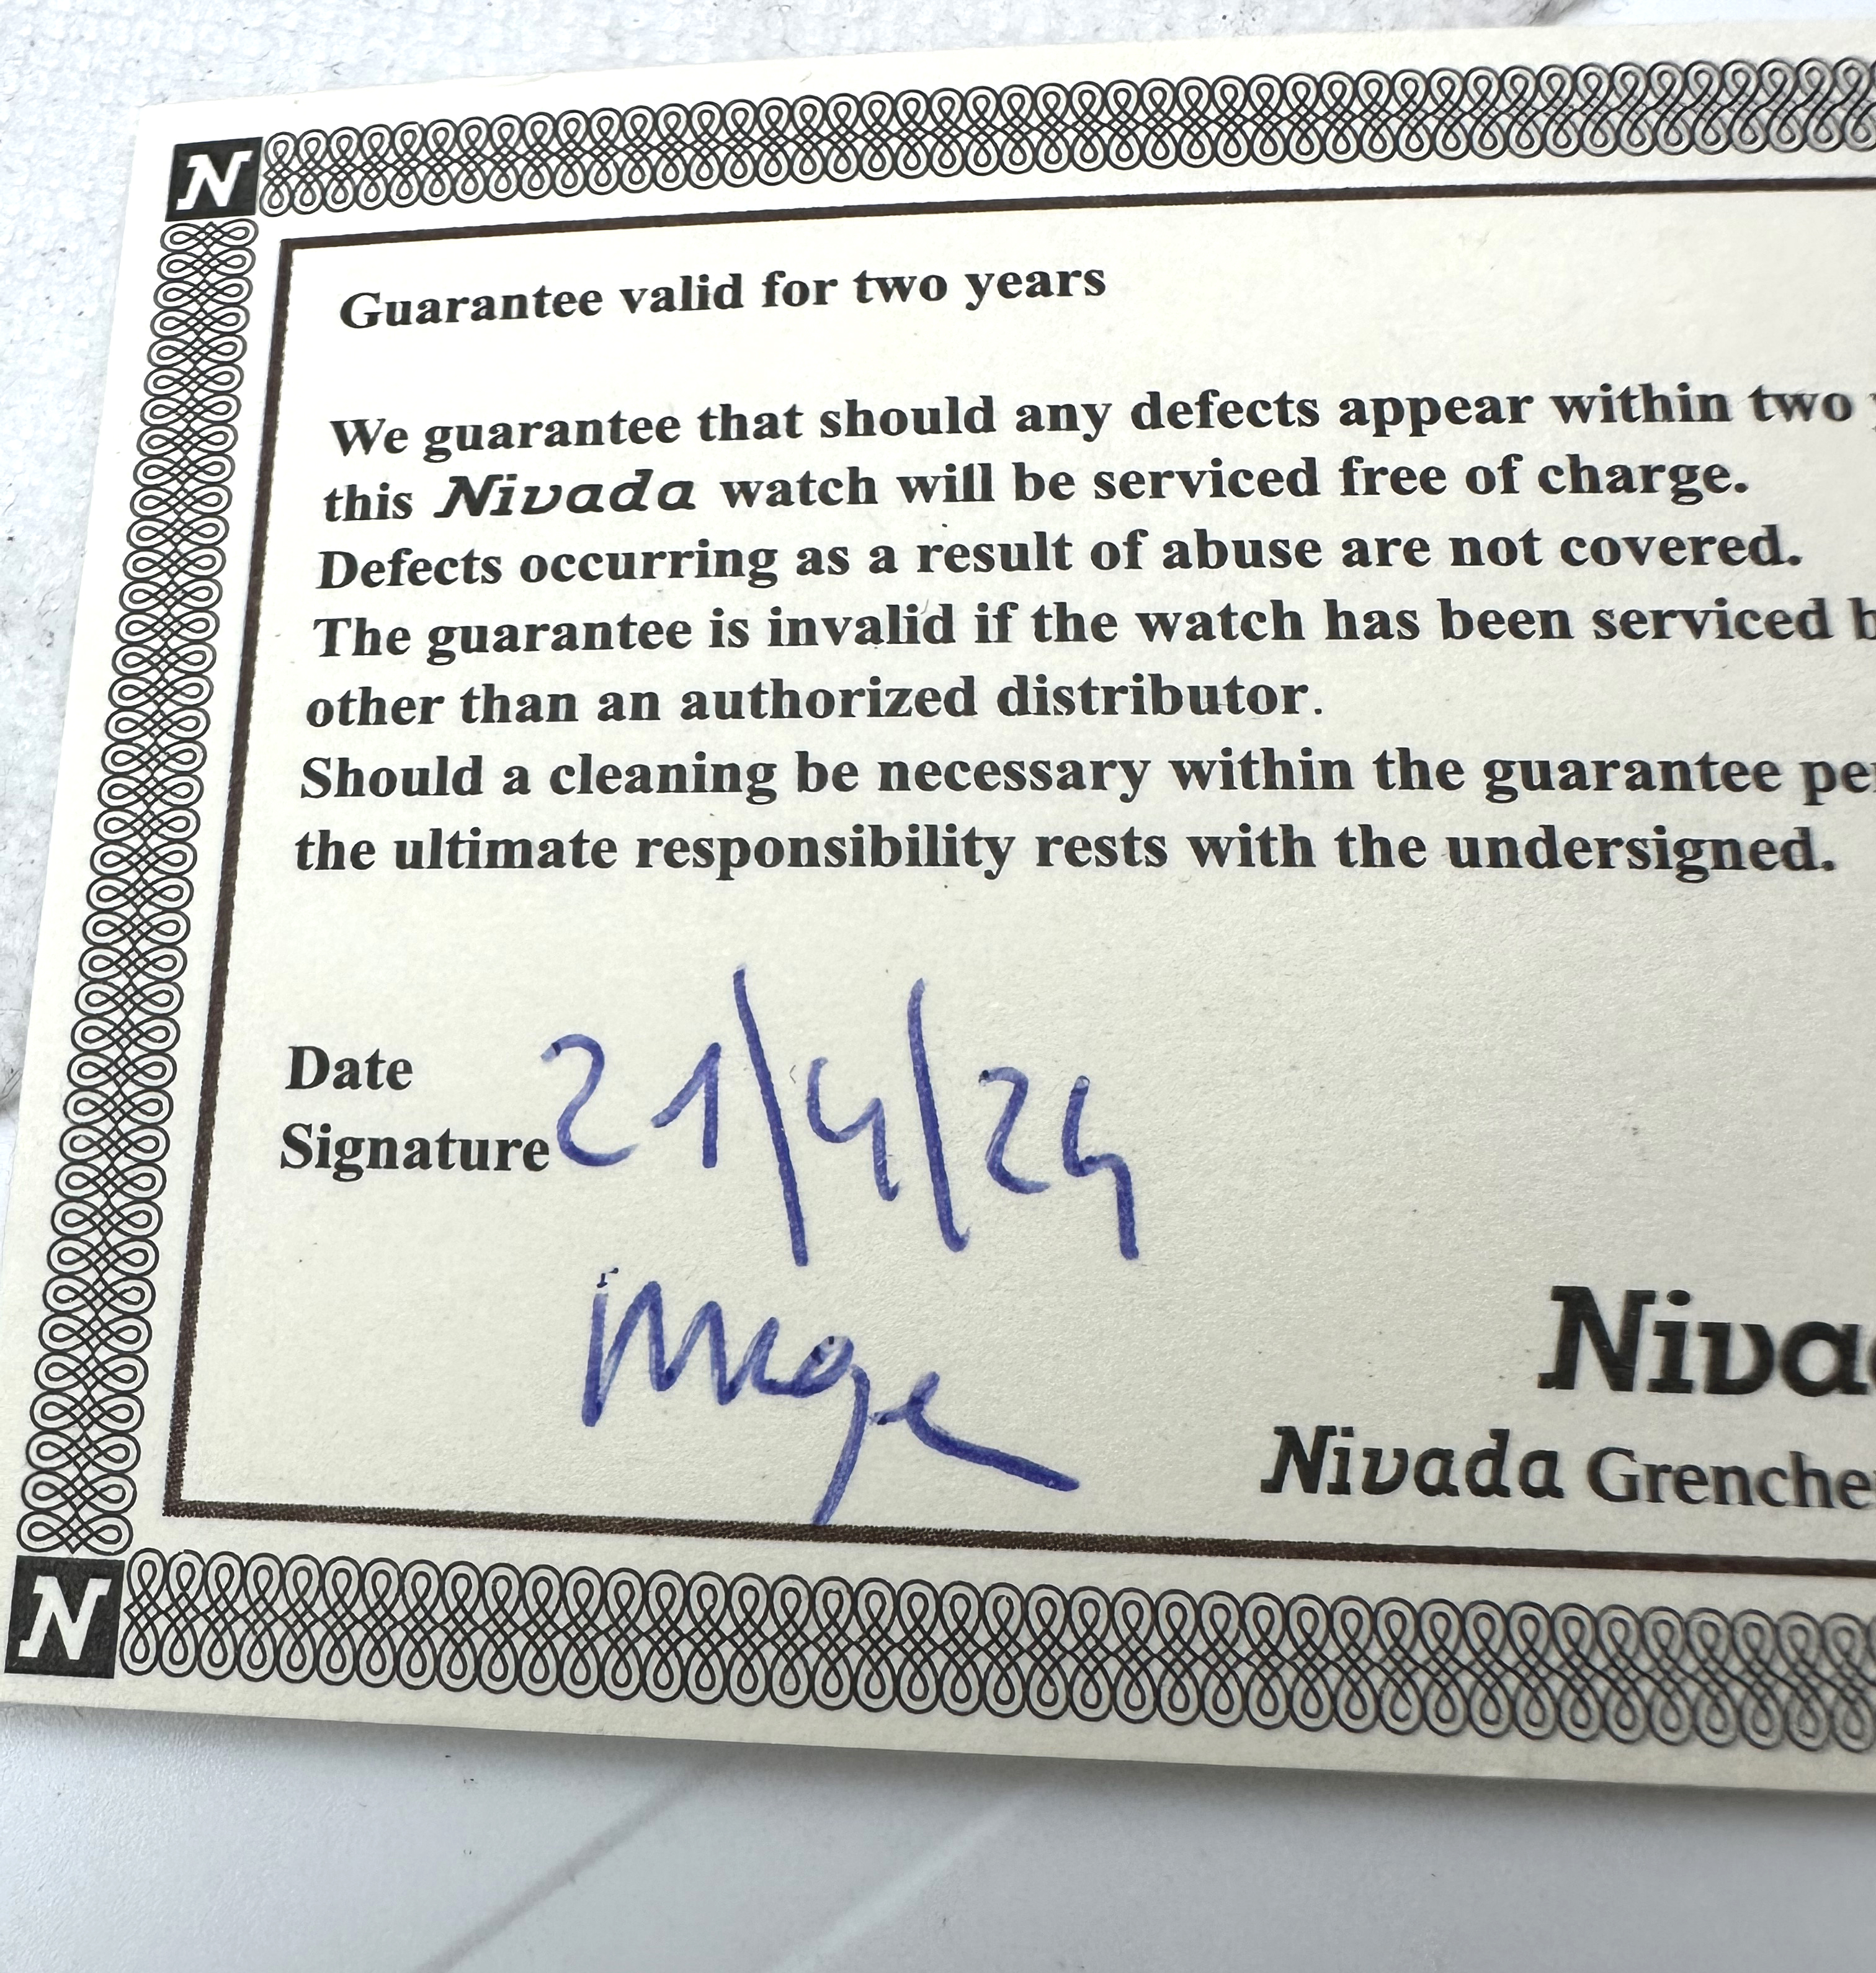 N
Guarantee valid for two years
We guarantee that should any defects appear within two
this Nivada watch will be serviced free of charge.
Defects occurring as a result of abuse are not covered.
The guarantee is invalid if the watch has been serviced b
other than an authorized distributor.
Should a cleaning be necessary within the guarantee pe
the ultimate responsibility rests with the undersigned.
Date 21/4/24
Signature
Nivad
Nivada Grenche
N